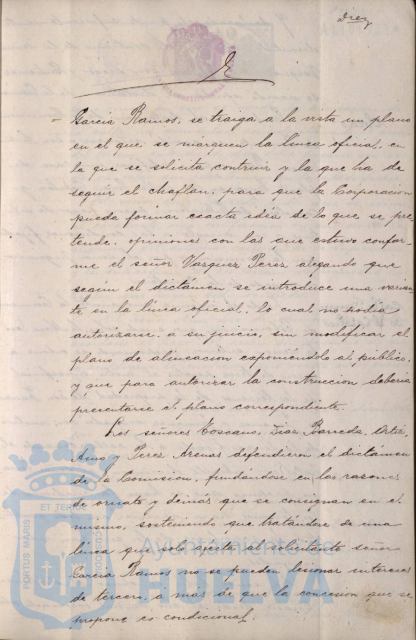 Diez
García Ramos, se traiga a la vista un plano
en el que se marquen la línea oficial, en
la que se solicita contruir y la que ha de
seguir el chaflan, para que la Corporacion
pueda formar exacta idéa de lo que se pre
tende, opiniones con las que estuvo confor-
me el señor Vazquez Perez alegando que
según el dictámen se introduce una varian
te en la línea oficial, lo cual no podia
autorizarse, a su juicio, sin modificar el
plano de alineación esponiéndolo al público,
y que para autorizar la construccion deberia
presentarse el plano correspondiente.
Los señores Toscano, Diaz Barreda, Ortiz,
Amo y Perez Arenas defendieron el dictámen
de la Comision, fundándose en las razones
de ornato y demás que se consignan en el
mismo, sosteniendo que tratándose de una
línea que solo afecta al solicitante señor
García Ramos no se pueden lesionar intereses
de tercero, a más de que la concesion que se
propone es condicional.
PORTUS MARIS
ET TERRAE
CUSTODIA
Ayuntamiento de
HUELVA